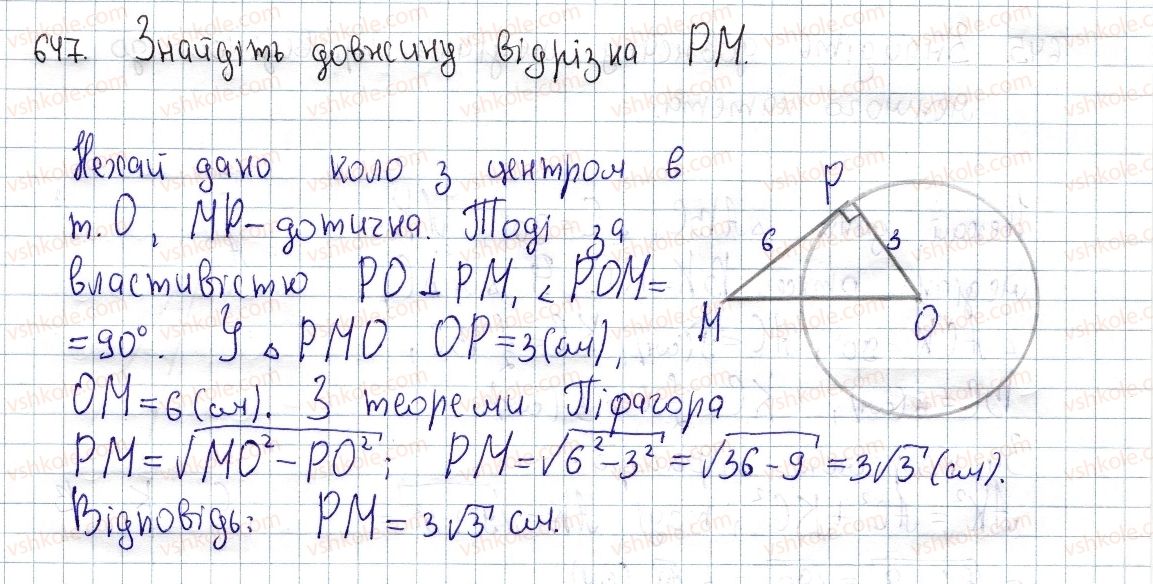 647. Знайдіть довжину відрізка PM.
Нехай дано коло з центром в
т. O, MP – дотична. Тоді за
властивістю PO⊥PM, ∠POM=
=90°. У △PMO OP=3(см),
OM=6(см). З теореми Піфагора
PM=√(MO²-PO²); PM=√(6²-3²)=√(36-9)=3√3(см).
Відповідь: PM=3√3 см.
P
6
3
M
O
vshkole.com